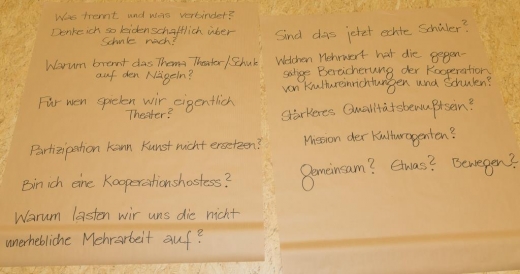 Was trennt und was verbindet?
Denke ich so leidenschaftlich über
Schule nach?
Warum brennt das Thema Theater/Schule
auf den Nägeln?
Für wen spielen wir eigentlich
Theater?
Partizipation kann Kunst nicht ersetzen?
Bin ich eine Kooperationshostess?
Warum lasten wir uns die nicht
unerhebliche Mehrarbeit auf?
Sind das jetzt echte Schüler?
Welchen Mehrwert hat die gegen-
satige Bereicherung der Kooperation
von Kultureinrichtungen und Schulen?
Stärkeres Qualitätsbewußtsein?
Mission der Kulturagenten?
Gemeinsam? Etwas? Bewegen?